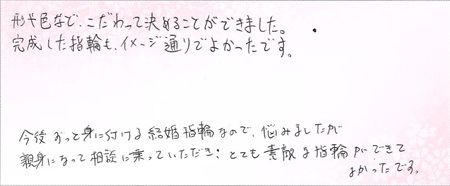 形や色など、こだわって決めることができました。
完成した指輪も、イメージ通りでよかったです。
今後ずっと身に付ける結婚指輪なので、悩みましたが
親身になって相談に乗っていただき、とても素敵な指輪ができて
よかったです。